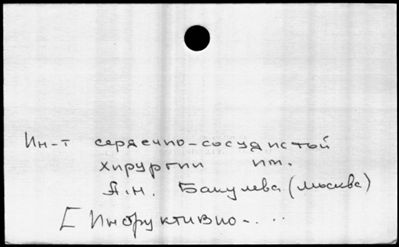 Ин-т сердечно-сосудистой
хирургии им.
А.Н. Бакулева (Москва)
[Инструктивно-...